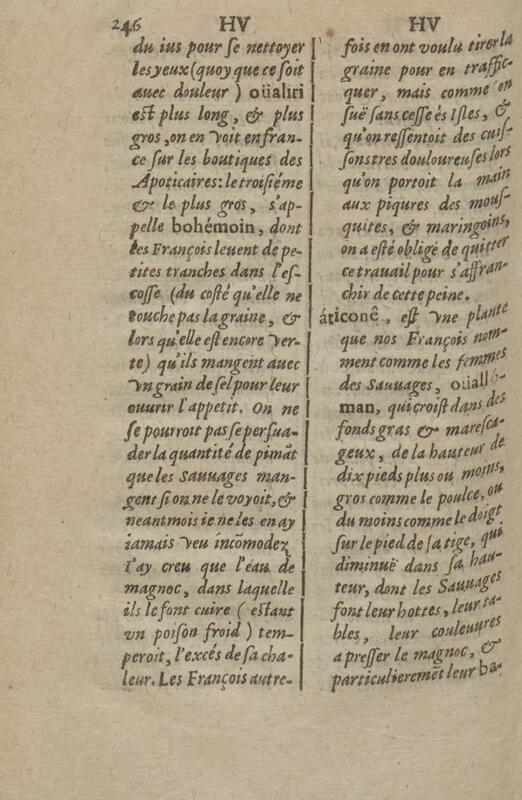 246 HV HV
du ius pour se nettoyer
les yeux (quoy que ce soit
auec douleur) oüaliri
est plus long, & plus
gros, on en voit en fran-
ce sur les boutiques des
Apoticaires: le troisiéme
& le plus gros, s'ap-
pelle bohémoin, dont
les François leuent de pe-
tites tranches dans l'es-
cosse (du costé qu'elle ne
touche pas la graine, &
lors qu'elle est encore ver-
te) qu'ils mangent auec
vn grain de sel pour leur
ouurir l'appetit. On ne
se pourroit pas se persua-
der la quantité de pimãt
que les Sauuages man-
gent si on ne le voyoit, &
neantmois ie ne les en ay
iamais veu incõmodez
I'ay creu que l'eau de
magnoc, dans laquelle
ils le font cuire (estant
vn poison froid) tem-
peroit, l'excés de sa cha-
leur. Les François autre-
fois en ont voulu tirer la
graine pour en traffic-
quer, mais comme on
suë sans cesse és Isles, &
qu'on ressentoit des cuis-
sons tres douloureuses lors
qu'on portoit la main
aux piqures des mous-
quites, & maringoins,
on a esté obligé de quitter
ce trauail pour s'affran-
chir de cette peine.
áticonê, est vne plante
que nos François nom-
ment comme les femmes
des Sauuages, oüallö-
man, qui croist dans des
fonds gras & maresca-
geux, de la hauteur de
dix pieds plus ou moins,
gros comme le poulce, ou
du moins comme le doigt
sur le pied de sa tige, qui
diminuë dans sa hau-
teur, dont les Sauuages
font leur hottes, leur ta-
bles, leur couleuures
a presser le magnoc, &
particulieremẽt leur ba-